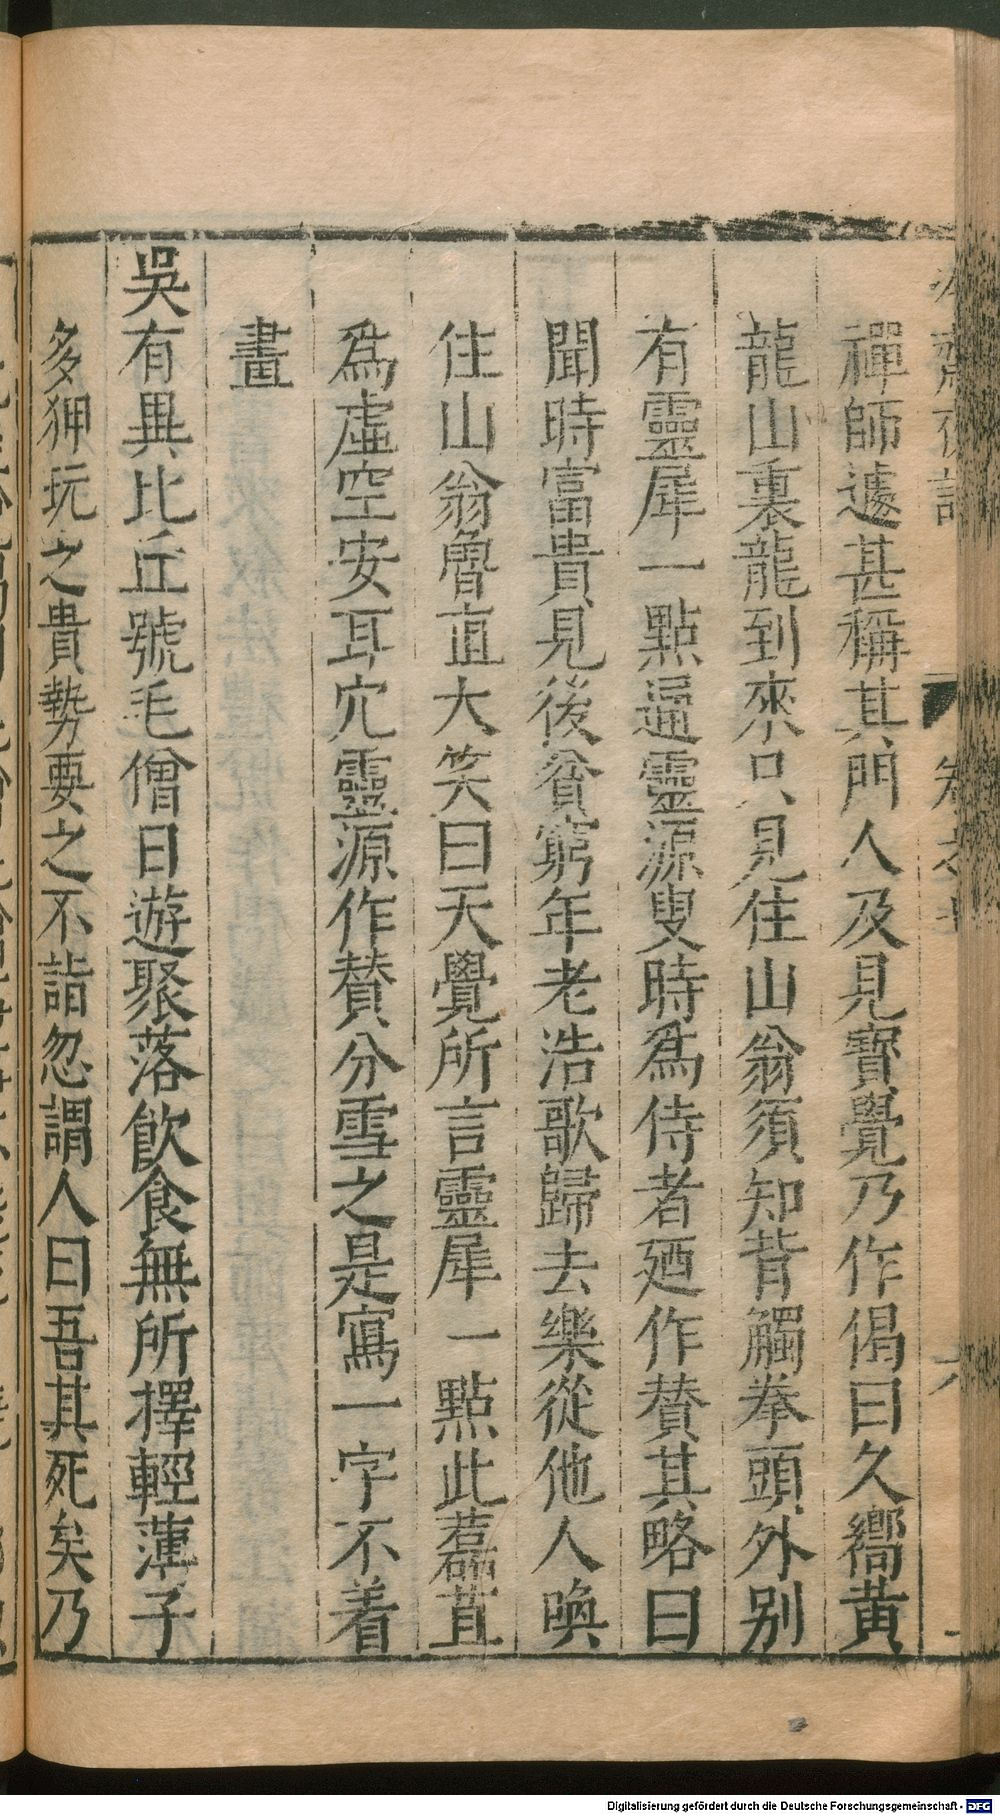 禪師遽甚稱其門人及見寶覺乃作偈曰久嚮黃
龍山裏龍到來只見住山翁須知背觸拳頭外别
有靈犀一點通靈源叟時爲侍者廼作賛其略曰
聞時富貴見後貧窮年老浩歌歸去樂從他人喚
住山翁魯直大笑曰天覺所言靈犀一點此藞苴
爲虛空安耳穴靈源作賛分雪之是寫一字不着
畫
吳有異比丘號毛僧日遊聚落飲食無所擇輕薄子
多狎玩之貴勢要之不詣忽謂人曰吾其死矣乃
Digitalisierung gefördert durch die Deutsche Forschungsgemeinschaft - DFG